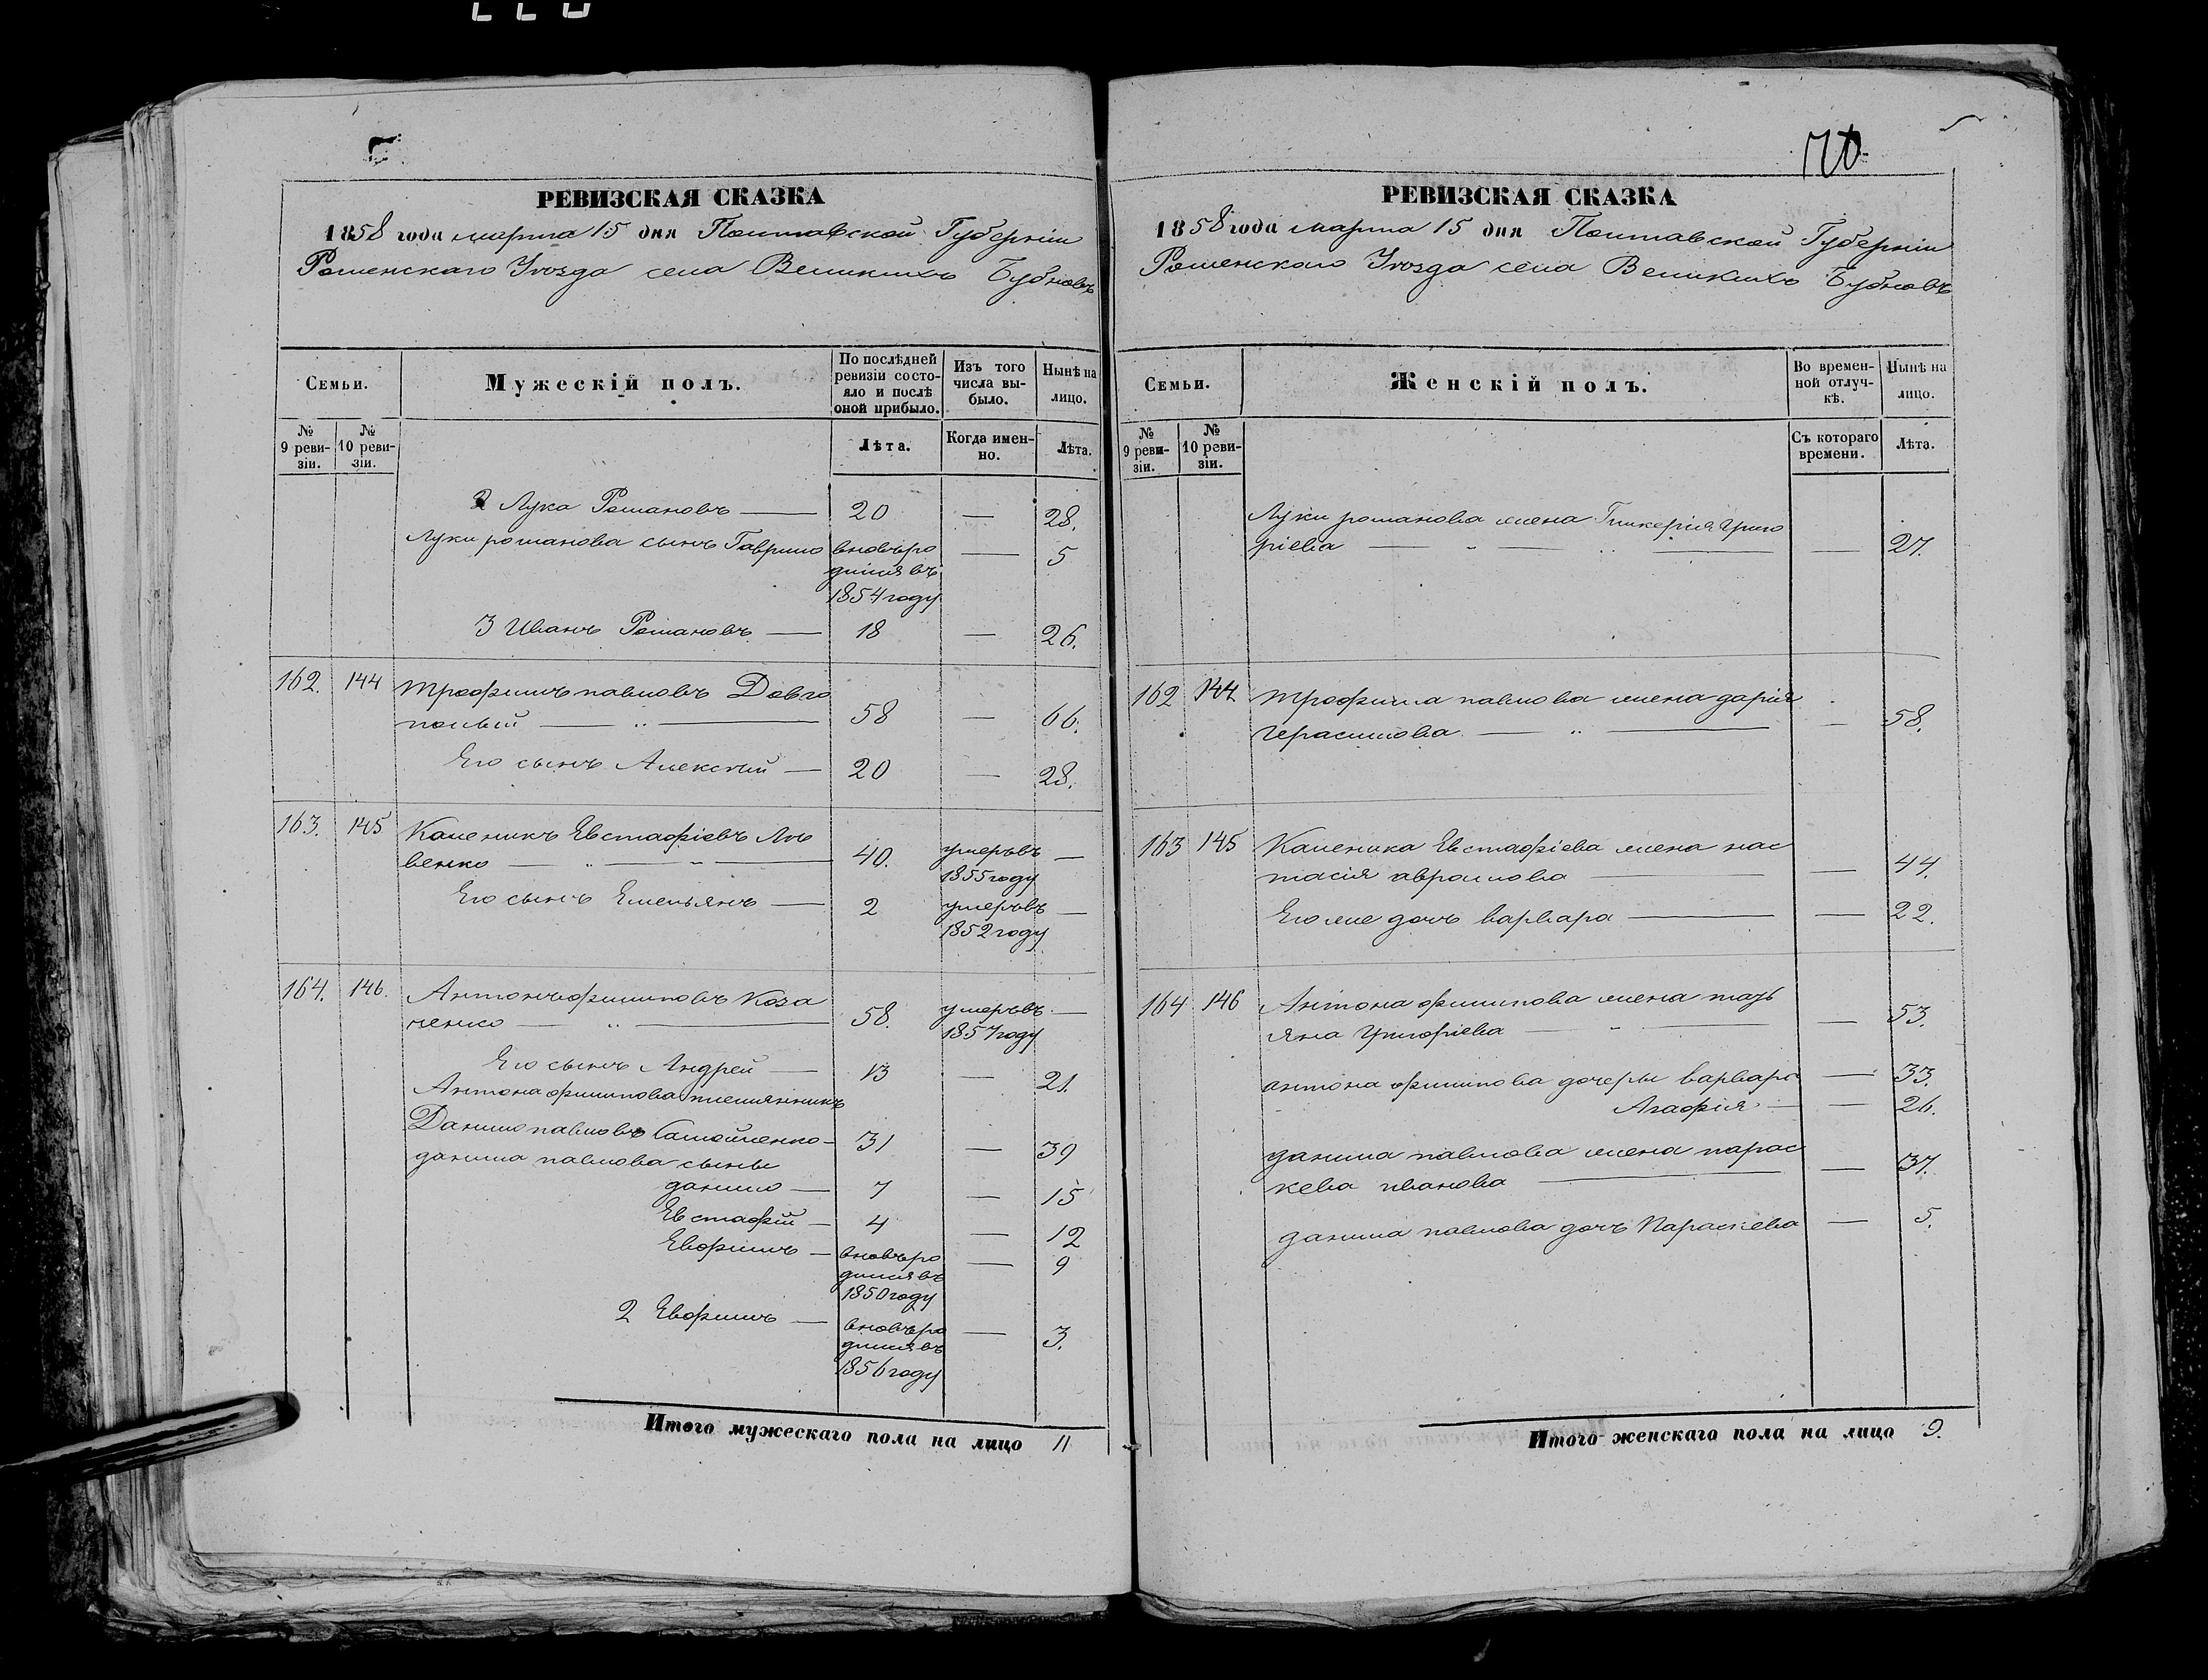 РЕВИЗСКАЯ СКАЗКА
1858 года марта 15 дня Полтавской Губерніи
Роменскаго Уѣзда села Великихъ Бубновъ
Семьи.
Мужескій полъ.
По послѣдней ревизіи состояло и послѣ оной прибыло.
Изъ того числа выбыло.
Нынѣ на лицо.
№ 9 ревизіи.
№ 10 ревизіи.
Лѣта.
Когда именно.
Лѣта.
2 Лука Романовъ — 20 — 28.
Луки романова сынъ Гаврило вновь ро — 5
дился въ
1854 году
3 Иванъ Романовъ — 18 — 26.
162. 144 трофимъ павловъ Довго
полый — 58 — 66.
Его сынъ Алексѣй — 20 — 28.
163. 145 Каленикъ Евстафіевъ
венко — 40. умеръ въ —
1855 году
Его сынъ Емельянъ — 2 умеръ въ —
1852 году
164. 146. Антонъ филиповъ Коза
ченко — 58. умеръ въ —
1857 году
Его сынъ Андрей — 13 — 21.
Антона филипова племянникъ
Данило павловъ Самойленко — 31 — 39
данила павлова сыны
данило — 7 — 15
Евстафій — 4 — 12
Евфимъ — вновь ро — 9
дился въ
1850 году
2 Евфимъ — вновь ро — 3.
дился въ
1856 году
Итого мужескаго пола на лицо 11
170
РЕВИЗСКАЯ СКАЗКА
1858 года марта 15 дня Полтавской Губерніи
Роменскаго Уѣзда села Великихъ Бубновъ
Семьи.
Женскій полъ.
Во временной отлучкѣ.
Нынѣ на лицо.
№ 9 ревизіи.
№ 10 ревизіи.
Съ котораго времени.
Лѣта.
Луки романова жена Гликерія Григо
ріева — — 27.
162 144 трофима павлова жена дарія
Герасимова — — 58.
163 145 Каленика Евстафіева жена нас
тасія аврамова — — 44.
Его же дочь варвара — — 22.
164 146 Антона филипова жена тать
яна Григоріева — — 53.
антона филипова дочери варвара — 33.
Агафія — — 26.
данила павлова жена парас
кева иванова — — 37.
данила павлова дочь Параскева — 5.
Итого женскаго пола на лицо 9.